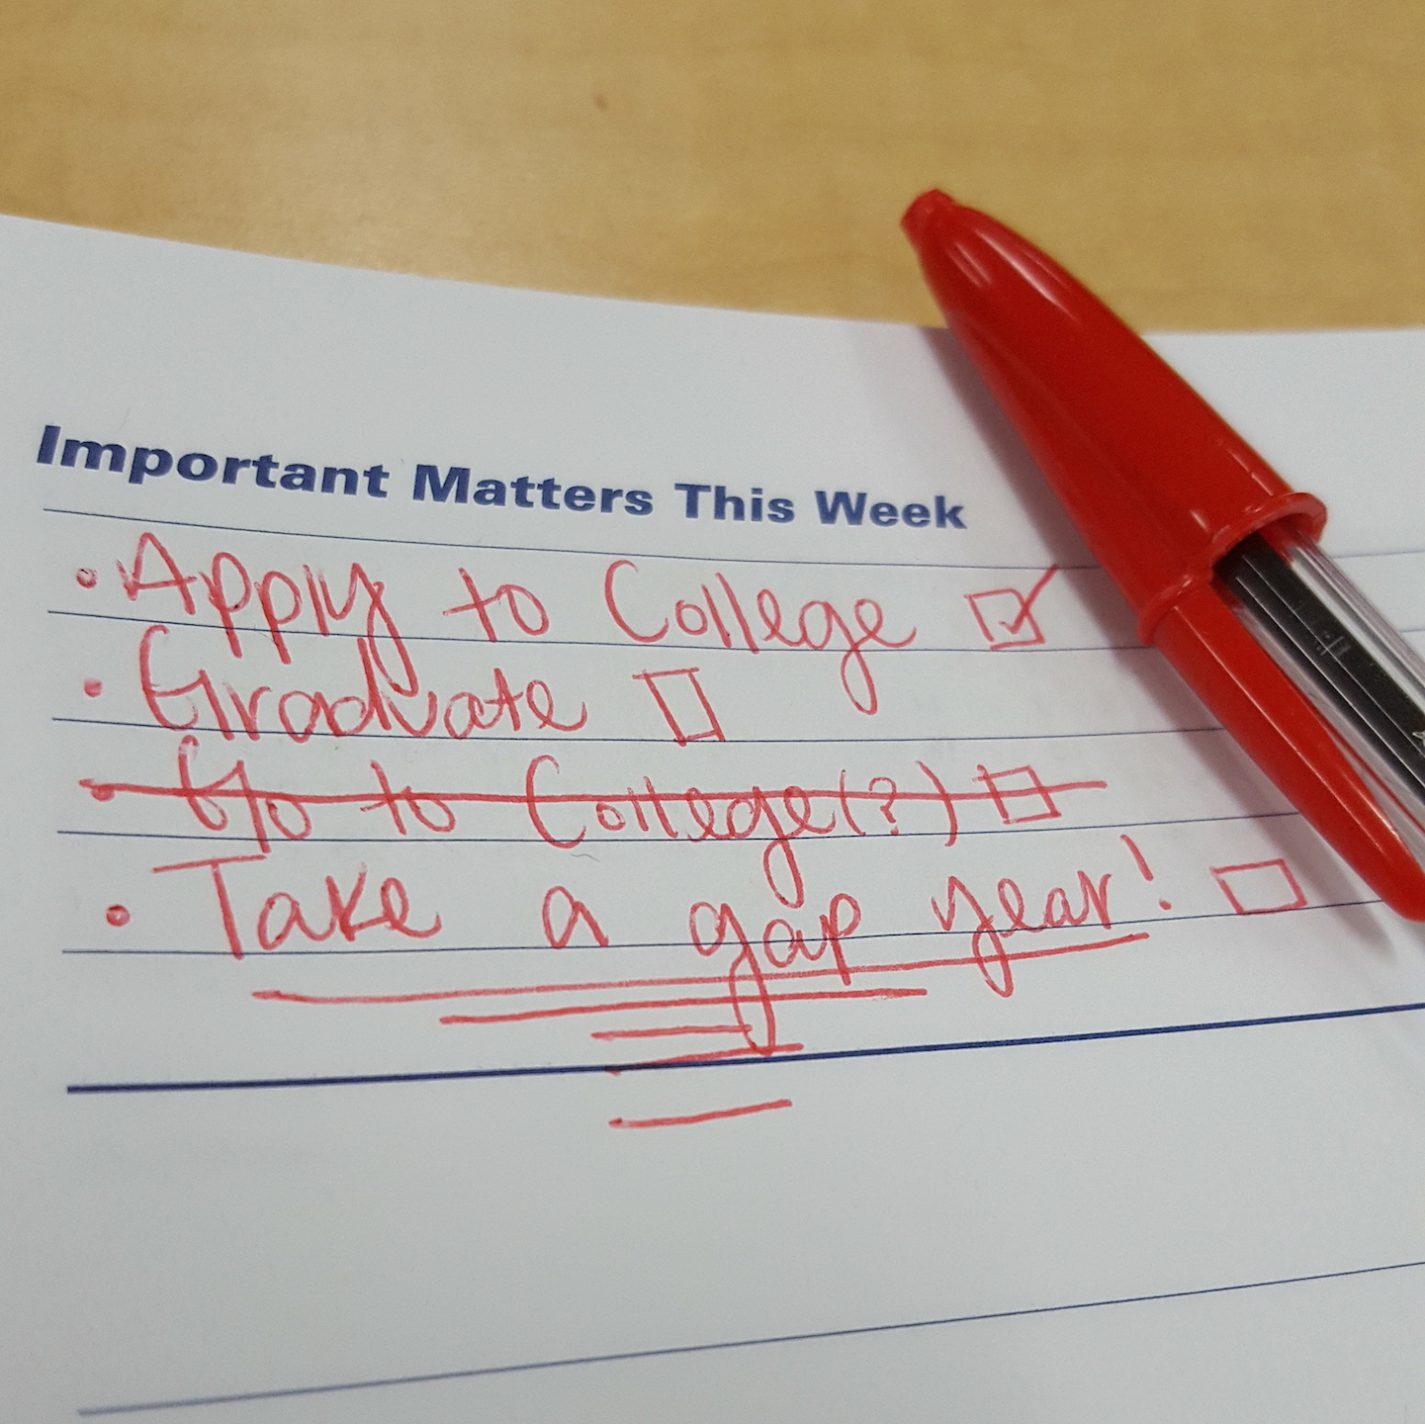 Important Matters This Week
• Apply to College ☑
• Graduate ☐
• Go to College(?) ☐
• Take a gap year! ☐